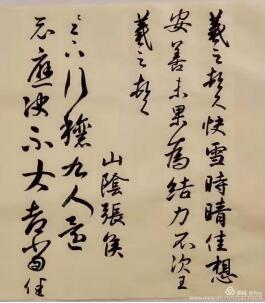 羲之頓首快雪時晴佳想
安善未果為結力不次王
羲之頓首
山陰張侯
足下行穰九人還
示應決不大都當佳